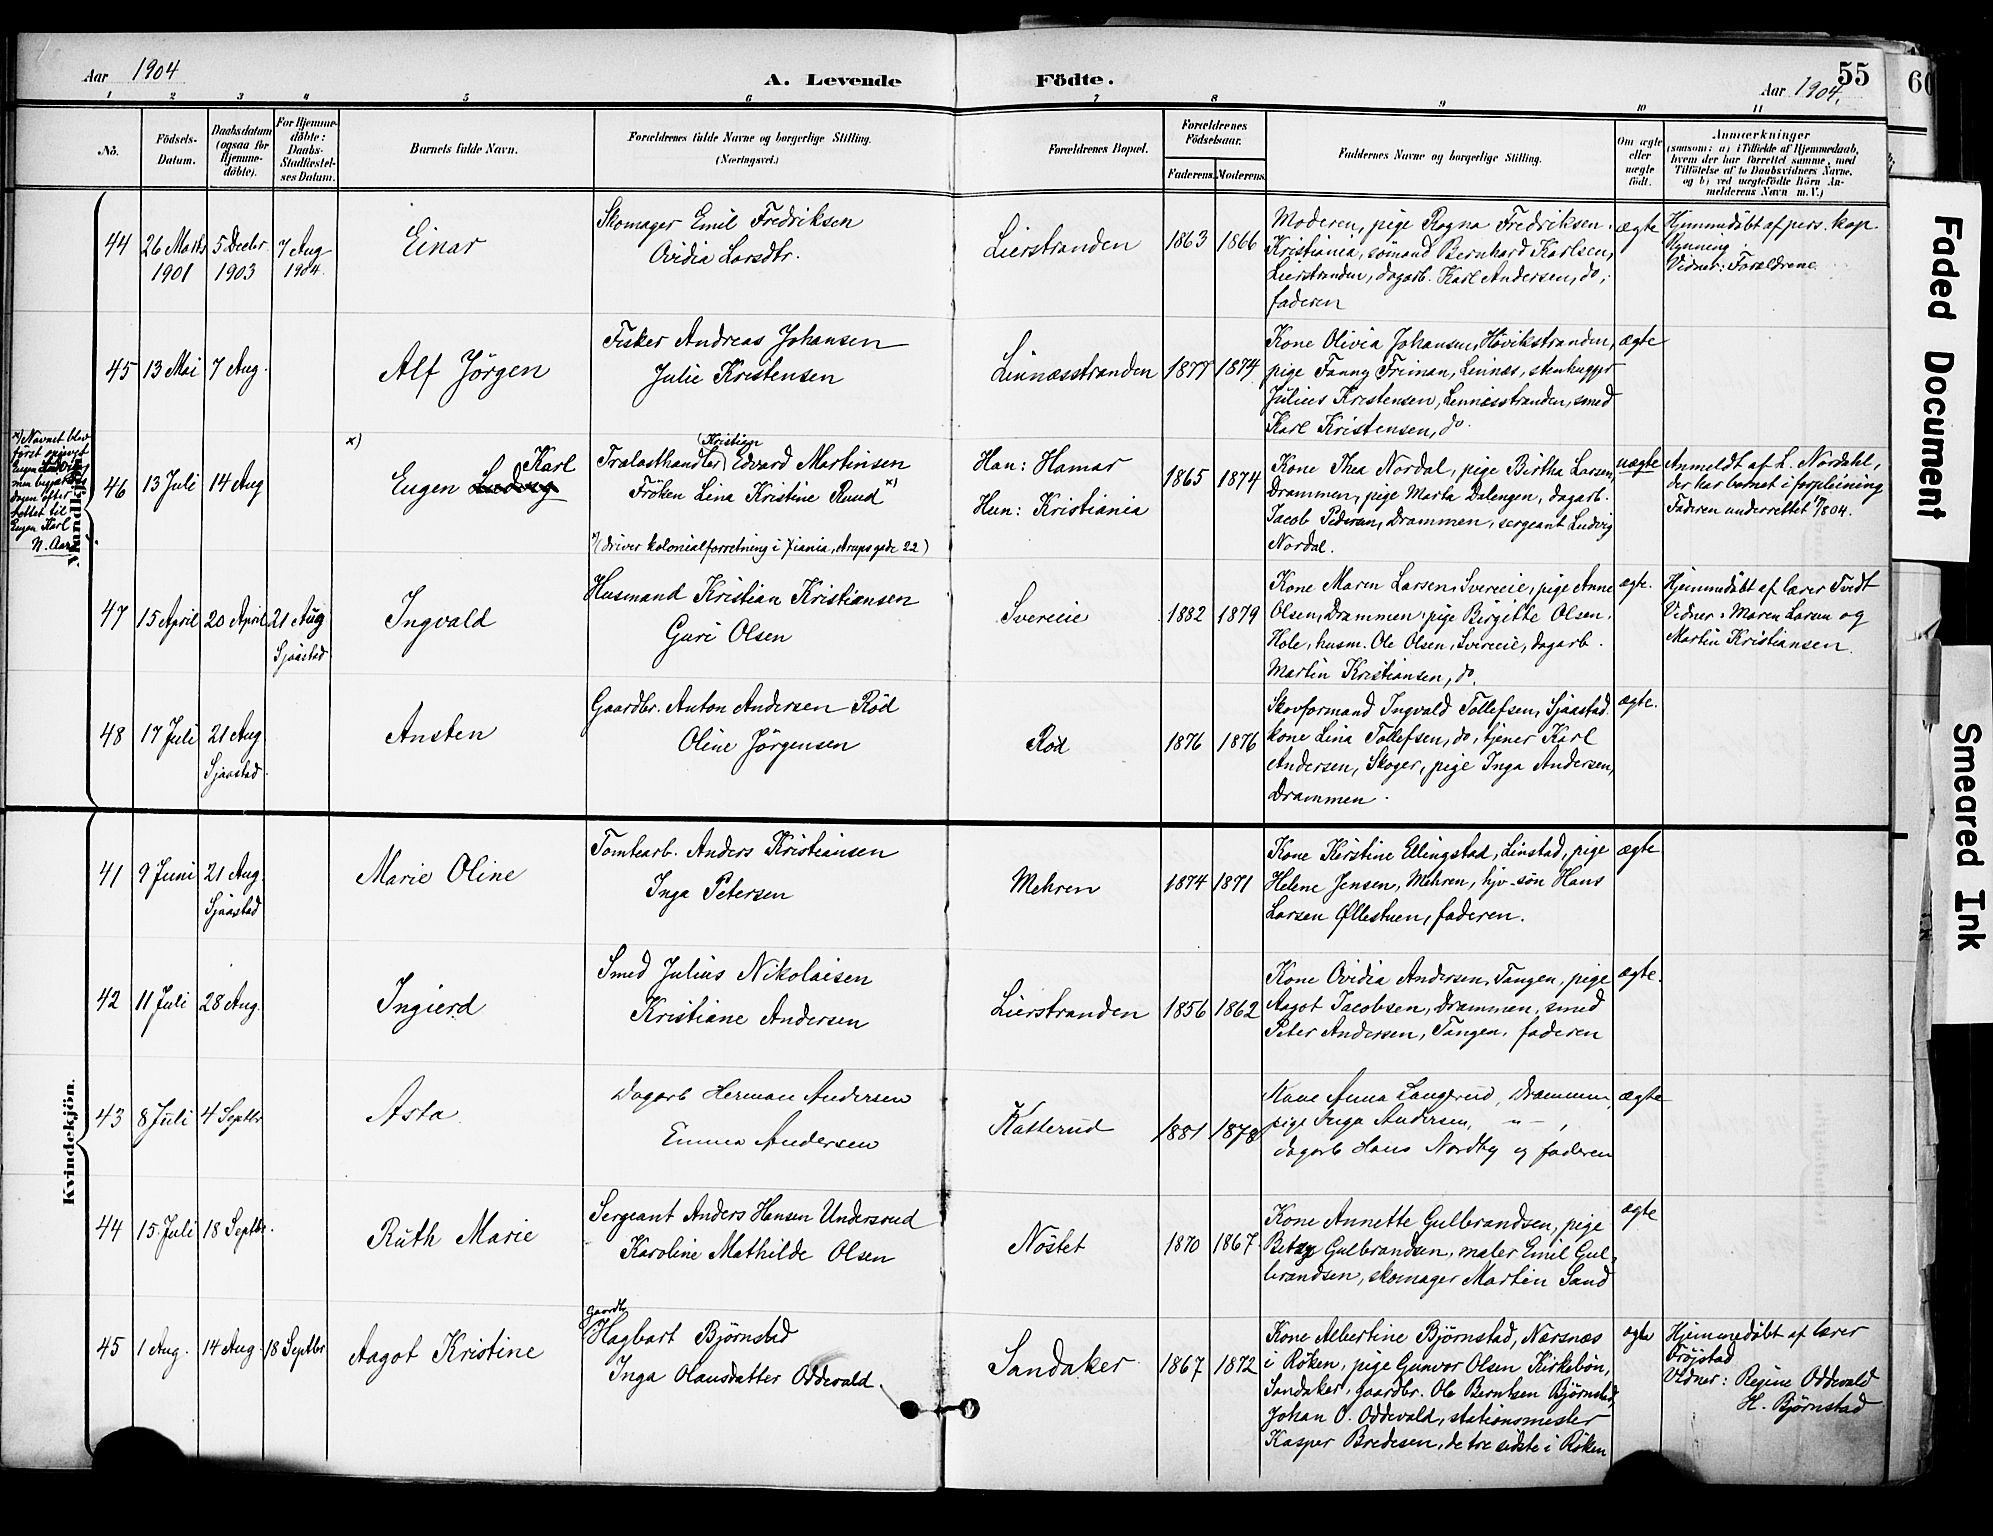 Aar 1904
A. Levende
Födte.
55
Aar 1904.
60
1 2 3 4 5 6 7 8 9 10 11
Nö.
Födsels-
Datum.
Daabsdatum
(ogsaa for
Hjemme-
döbte).
For Hjemme-
döbte:
Daabs-
Stadfæstel-
ses Datum.
Barnets fulde Navn.
Forældrenes fulde Navne og borgerlige Stilling.
(Næringsvei.)
Forældrenes Bopæl.
Forældrenes
Födselsaar.
Faderens. Moderens.
Faddernes Navne og borgerlige Stilling.
Om ægte
eller
uægte
födt.
Anmærkninger
(saasom: a) i Tilfælde af Hjemmedaab,
hvem der har forrettet samme, med
Tilföielse af to Daabsvidners Navne,
og b) ved uægtefödte Börn An-
melderens Navn m. V.)
Mandkjön.
44
26 Marts
1901
5 Decbr.
1903
7 Aug
1904.
Einar
Skomager Emil Fredriksen
Ovidia Larsdtr.
Lierstranden
1863 1866
Moderen, pige Ragna Fredriksen.
Kristiania, sømand Bernhard Karlsen,
Lierstranden, dagarb. Karl Andersen, do,
faderen
ægte
Hjemmedøbt af pers. kap.
Vidner: Forældrene
45
13 Mai
7 Aug.
Alf Jørgen
Fisker Andreas Johansen
Julie Kristensen
Linnesstranden
1877 1874
Kone Olivia Johansen, Høvikstranden,
pige Fanny Freiman, Linnæs, stenhugger
Julius Kristensen, Linnesstranden, smed
Karl Kristensen, do
ægte
x) Navnet blev
først opgivet
Eugen Ludvig
men
dagen efter
rettet til
Eugen Karl
N. Aars
46
13 Juli
14 Aug
x)
Eugen Ludvig Karl
Trælasthandler (Kristian) Edvard Martinsen
Frøken Lina Kristine Ruud x)
x) (driver kolonialforretning i Xiania, Arupsgade 22)
Han: Hamar
Hun: Kristiania
1865 1874
Kone Thea Nordal, pige Birtha Larsen,
Drammen, pige Marta Dalengen, dagarb.
Jacob Pedersen, Drammen, sergeant Ludvig
Nordal.
uægte
Anmeldt af L. Nordahl,
der har barnet i forpleining
Faderen underrettet 17/8 04.
47
15 April
20 April
21 Aug
Sjaastad
Ingvald
Husmand Kristian Kristiansen
Guri Olsen
Svereie
1882 1879
Kone Maren Larsen, Svereie, pige Anne
Olsen, Drammen, pige Birgitte Olsen,
Hole, husm. Ole Olsen, Svereie, dagarb.
Martin Kristiansen, do.
ægte.
Hjemmedøbt af lærer Tvedt
Vidner: Maren Larsen og
Martin Kristiansen.
48
17 Juli
21 Aug
Sjaastad.
Ansten
Gaardbr. Anton Andersen Rød
Oline Jørgensen
Rød
1876 1876
Skovformand Ingvald Tollefsen, Sjaastad
kone Lina Tollefsen, do, tjener Karl
Andersen, Skoger, pige Inga Andersen,
Drammen.
ægte.
Kvindekjön.
41
9 Juni
21 Aug.
Sjaastad
Marie Oline
Tomtearb. Anders Kristiansen
Inga Petersen
Mehren
1874 1871
Kone Kirstine Ellingstad, Linstad, pige
Helene Jensen, Mehren, hjv. søn Hans
Larsen Øllestuen, faderen.
ægte
42
11 Juli
28 Aug.
Ingierd
Smed Julius Nikolaisen
Kristiane Andersen
Lierstranden
1856 1862
Kone Ovidia Andersen, Tangen, pige
Aagot Jacobsen, Drammen, smed
Peter Andersen, Tangen, faderen
ægte.
43
8 Juli
4 Septbr
Asta
Dagarb Herman Andersen
Emma Andersen
Katterud
1881 1878
Kone Anna Langerud, Drammen,
pige Inga Andersen, " - ,
dagarb Hans Nordby og faderen
ægte
44
15 Juli
18 Septbr.
Ruth Marie
Sergeant Anders Hansen Undersrud
Karoline Mathilde Olsen
Nøstet
1870 1867
Kone Annette Gulbrandsen, pige
Betzy Gulbrandsen, maler Emil Gul-
brandsen, skomager Martin Sand
ægte
45
1 Aug.
14 Aug.
18 Septbr
Aagot Kristine
gaardbr
Hagbart Bjørnstad
Inga Olausdatter Oddevald.
Sandaker
1867 1872
Kone Albertine Bjørnstad, Nærsnæs
i Røken, pige Gunvor Olsen Kirkebøn,
Sandaker, gaardbr. Ole Berntsen Bjørnstad,
Johan O. Oddevald, stationsmester
Kasper Bredesen, de tre sidste i Røken
ægte
Hjemmedøbt af lærer
Frøjstad
Vidner: Regine Oddevald
H. Bjørnstad
Faded Document
Smeared Ink